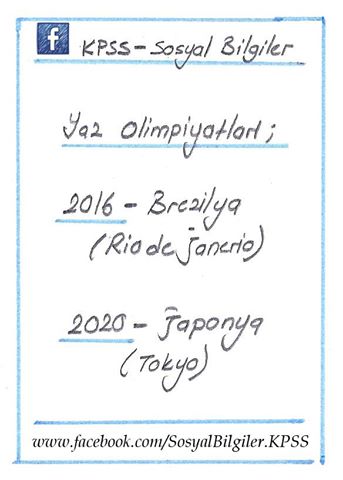 f KPSS-Sosyal Bilgiler
Yaz Olimpiyatları;
2016 - Brezilya
(Rio de Janerio)
2020 - Japonya
(Tokyo)
www.facebook.com/SosyalBilgiler.KPSS